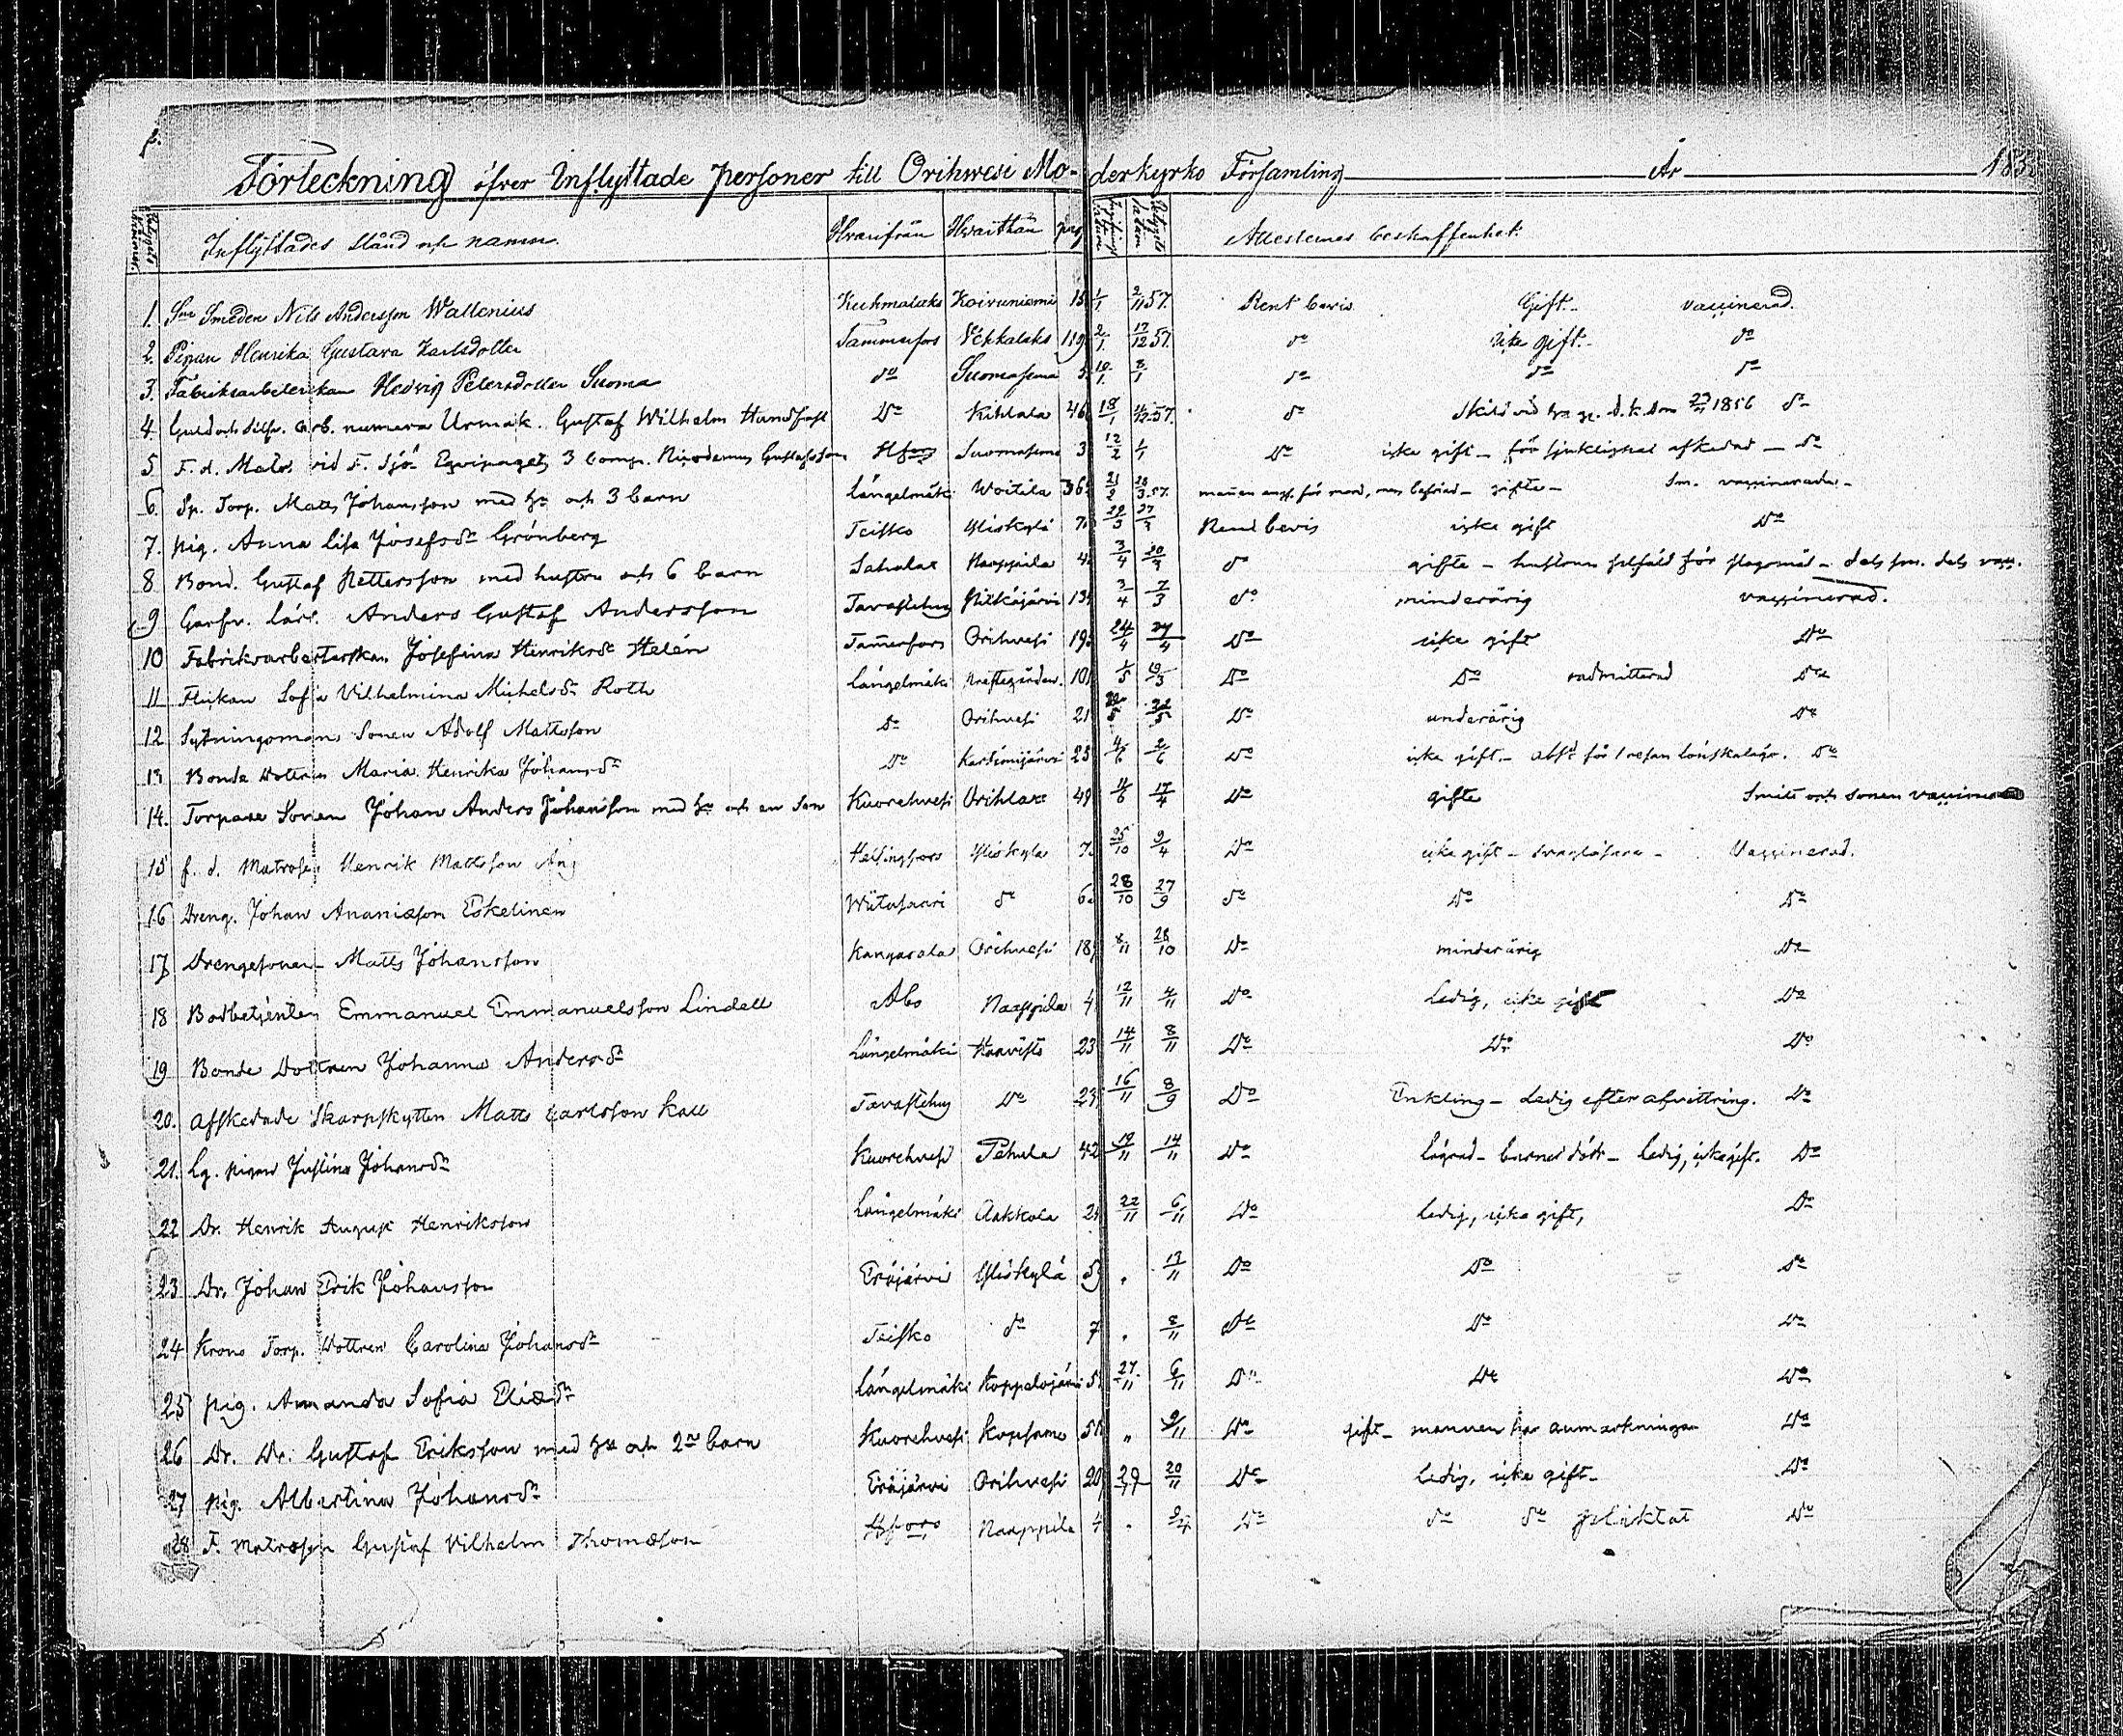 Förteckning öfver Inflyttade Personer till Orihwesi Moderkyrko Församling År 185
Inflyttades stånd och namn. Hvarifrån Hvarthän pag Attesternes beskaffenhet.
1. Smeden Nils Andersson Wallenius Kuhmalaks Koivuniemi 15 1/1 2/11 57. Rent bevis Gift. vaccinerad.
2. Pigan Henrika Gustava Karlsdotter Tammerfors Vehkalaks 119 2/1. 17/12 57. do icke gift. do
3. Fabriksarbeterskan Hedvig Petersdotter Suoma do Suomasema 10/1. 8/1 do do do
4. Guld och silfv. arb. numera Urmak. Gustaf Wilhelm Handfast Do Kihlala 46 18/1 57. do skild vid d. k. dom 1856 do
5 F. d. Matr. vid F. Sjö Eqvipaget, 3 Comp. Nicodemus Gustafsson Hfors Suomasema 3 12/2 1/1 Do icke gift – för sjuklighet afskedad – do
6. Sp. Torp. Matts Johansson med hu och 3 barn Längelmäki Woitila 36 21/2 57. gifte – Sm. vaccinerade –
7. pig. Anna Lisa Josefsdr Grönberg Teisko Yliskylä 7 29/3 27/3 Rent bevis icke gift Do
8 Bond. Gustaf Pettersson med hustru och 6 barn Sahalax Naappila 4 3/4 20/3 do gifte – hustrun dels sm. dels vacc.
9 Garfv. lärl. Anders Gustaf Andersson Tavastehus Pitkäjärvi 13 3/4 7/3 do minderårig vaccinerad.
10 Fabriksarbeterskan Josefina Henriksdr Helén Tamerfors Orihvesi 19 24/4 24/4 Do icke gift Do
11 Flickan Sofia Vilhelmina Michelsdr Roth Längelmäki Prestegården. 101 1/5 19/3 Do Do oadmitterad Do
12 Sytningomans Sonen Adolf Mattsson do Orihvesi 21 Do underårig Do
13 Bonde Dottren Maria Henrika Johansdr Do 25 4/6 2/6 Do icke gift. – för 1 resan lönskaläge. Do
14. Torpare Sonen Johan Anders Johansson med hu och en son Kuorehvesi Orihlax 49 11/6 17/4 Do gifte Smitt och sonen vaccinerad
15 f. d. Matrosen Henrik Mattsson Helsingfors Yliskylä 7 25/10 9/4 Do icke gift – svagläsare – Vaccinerad.
16 Dreng. Johan Ananiæson Eskelinen Wiitasaari do 6 28/10 27/9 do Do Do
17 Drengesonen Matts Johansson Kangasala Orihvesi 18 8/11 28/10 Do minderårig Do
18 Bodbetjenten Emmanuel Emmanuelsson Lindell Åbo Naappila 4 12/11 4/11 Do Ledig, icke gift Do
19 Bonde Dottren Johanna Andersdr Längelmäki Haavisto 23 14/11 8/11 Do Do Do
20. Afskedade Skarpskytten Matts Carlsson Kall Tavastehus Do 23 16/11 8/9 Do Enkling – Ledig efter afvittring. Do
21. Lg. pigan Justina Johansdr Kuorehvesi Pehula 42 19/11 14/11 Do Lägrad – barnet dödt – Ledig, icke gift. Do
22 Dr. Henrik August Henriksson Längelmäki Aakkola 2 22/11 6/11 Do ledig, icke gift, Do
23 Dr. Johan Erik Johansson Eräjärvi Yliskylä 5 . 13/11 Do Do do
24 Krono Torp. Dottren Carolina Johansdr Teisko do 7 . 8/11 Do Do Do
25 pig. Amanda Sofia Eliædr Längelmäki Koppelojärvi 5 27/11 6/11 Do Do Do
26 Dr. Dr. Gustaf Eriksson med hu och 2ne barn Kuorehvesi Kopsamo 51 " 9/11 Do gift – mannen har anmerkningar Do
27 pig. Albertina Johansdr Eräjärvi Orihvesi 20 29/11 20/11 Do ledig, icke gift – Do
28 F. matrosen Gustaf Vilhelm Thomæson Hfors Naappila 4 . Do do do pliktat Do